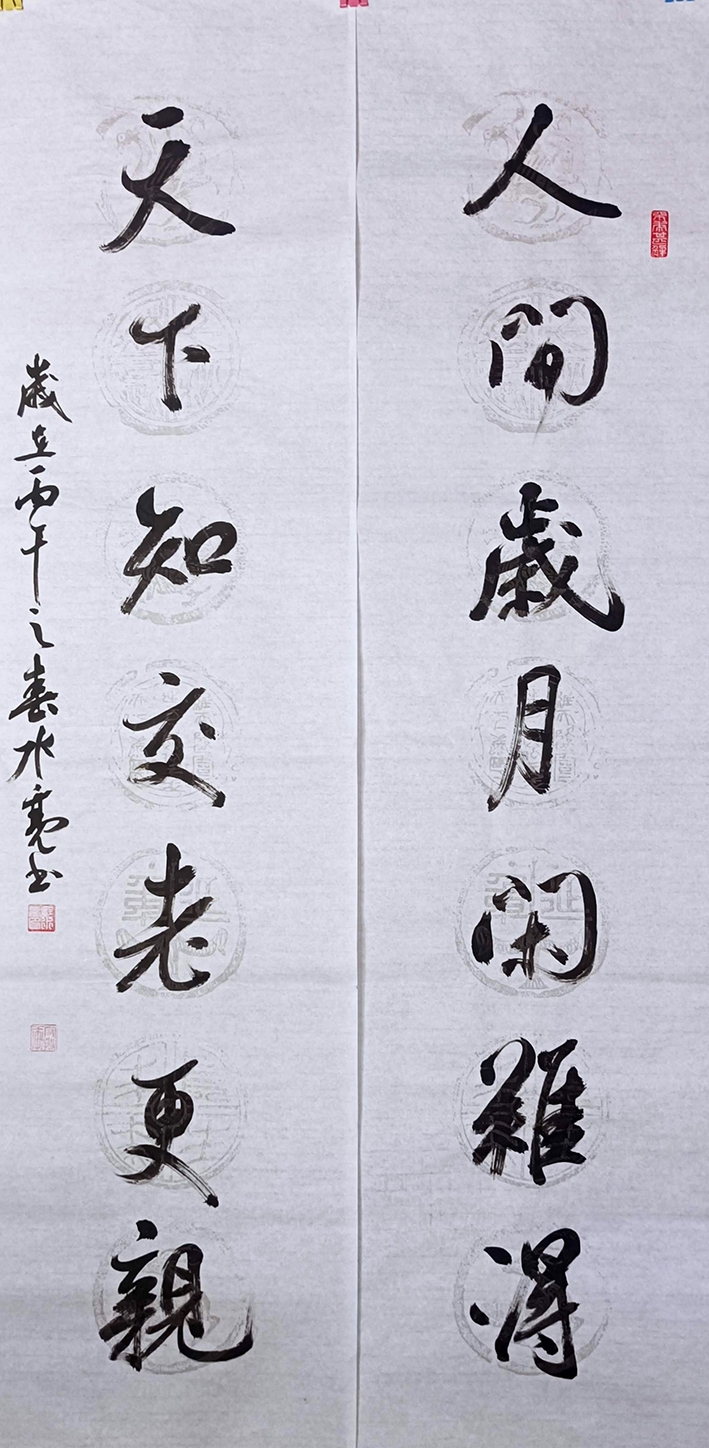 人間歲月閑難得
天下知交老更親
歲在丙午之春水亮书